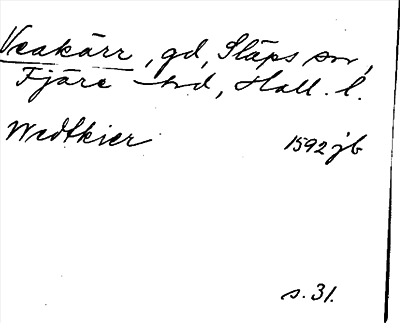 Veakärr, gd, Släps sn,
Fjäre hd, Hall. l.
Wedtkier 1592 jb
s. 31.